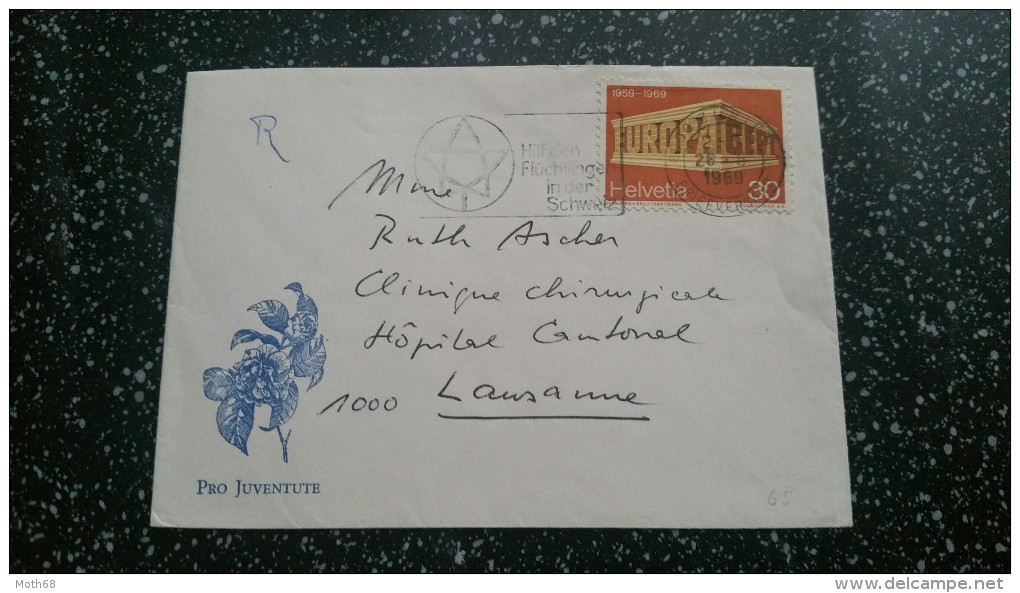 R
1959–1969
EUROPA CEPT
Helvetia 30
1969
Hilf den
Flüchtlingen
in der
Schweiz
Mme
Ruth Ascher
Clinique chirurgicale
Hôpital Cantonal
1000 Lausanne
PRO JUVENTUTE
65
Moth68
www.delcampe.net